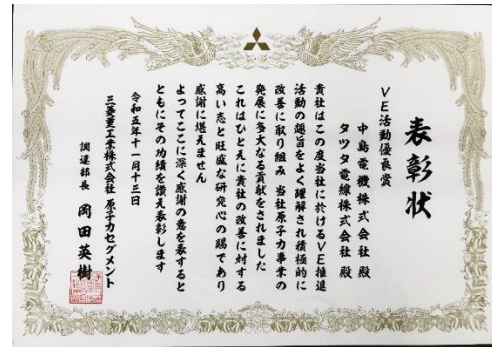 表彰状
VE活動優良賞
中島電機株式会社 殿
タツタ電線株式会社 殿
貴社はこの度当社に於けるVE推進
活動の趣旨をよく理解され積極的に
改善に取り組み 当社原子力事業の
発展に多大なる貢献をされました
これはひとえに貴社の改善に対する
高い志と旺盛な研究心の賜であり
感謝に堪えません
よってここに深く感謝の意を表すると
ともにその功績を讃え表彰します
令和五年十一月十三日
三菱重工業株式会社 原子力セグメント
調達部長 岡田英樹